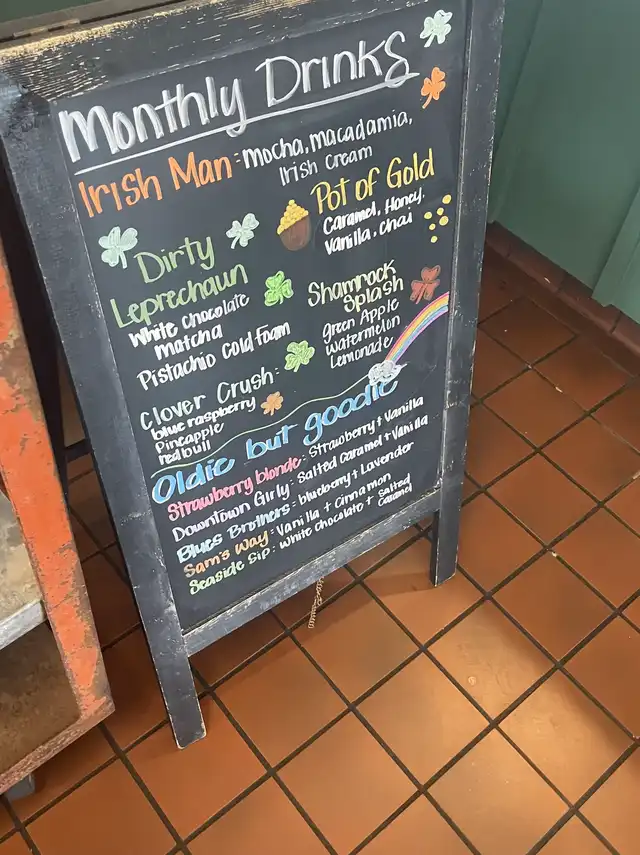 Monthly Drinks
Irish Man: mocha, macadamia,
Irish Cream
Pot of Gold
Caramel, Honey,
Vanilla, Chai
Dirty
Leprechaun
White Chocolate
matcha
Pistachio Cold Foam
Shamrock
Splash
green Apple
watermelon
Lemonade
Clover Crush:
blue raspberry
Pineapple
red bull
Oldie but goodie
Strawberry blonde: Strawberry + Vanilla
Downtown Girly: Salted Caramel + Vanilla
Blues Brothers: blueberry + Lavender
Sam's Way: Vanilla + Cinnamon
Seaside Sip: White Chocolate + Salted
Caramel